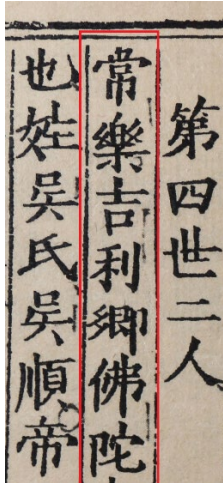 第四世二人
常樂吉利卿佛陀
也姓吳氏吳順帝